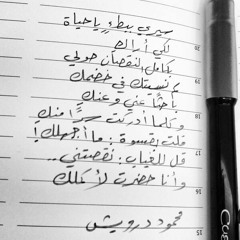 سيري ببطءٍ يا حياة
لكي أراك
بكامل النقصان حولي
كم نسيتك في خضمك
باحثًا عني وعنك
وكلما أدركت سرًا منك
قلت بقسوة : ما أجهلك !
قل للغياب : نقصتني ..
وأنا حضرت لأكملك
محمود درويش
20
19
17
15